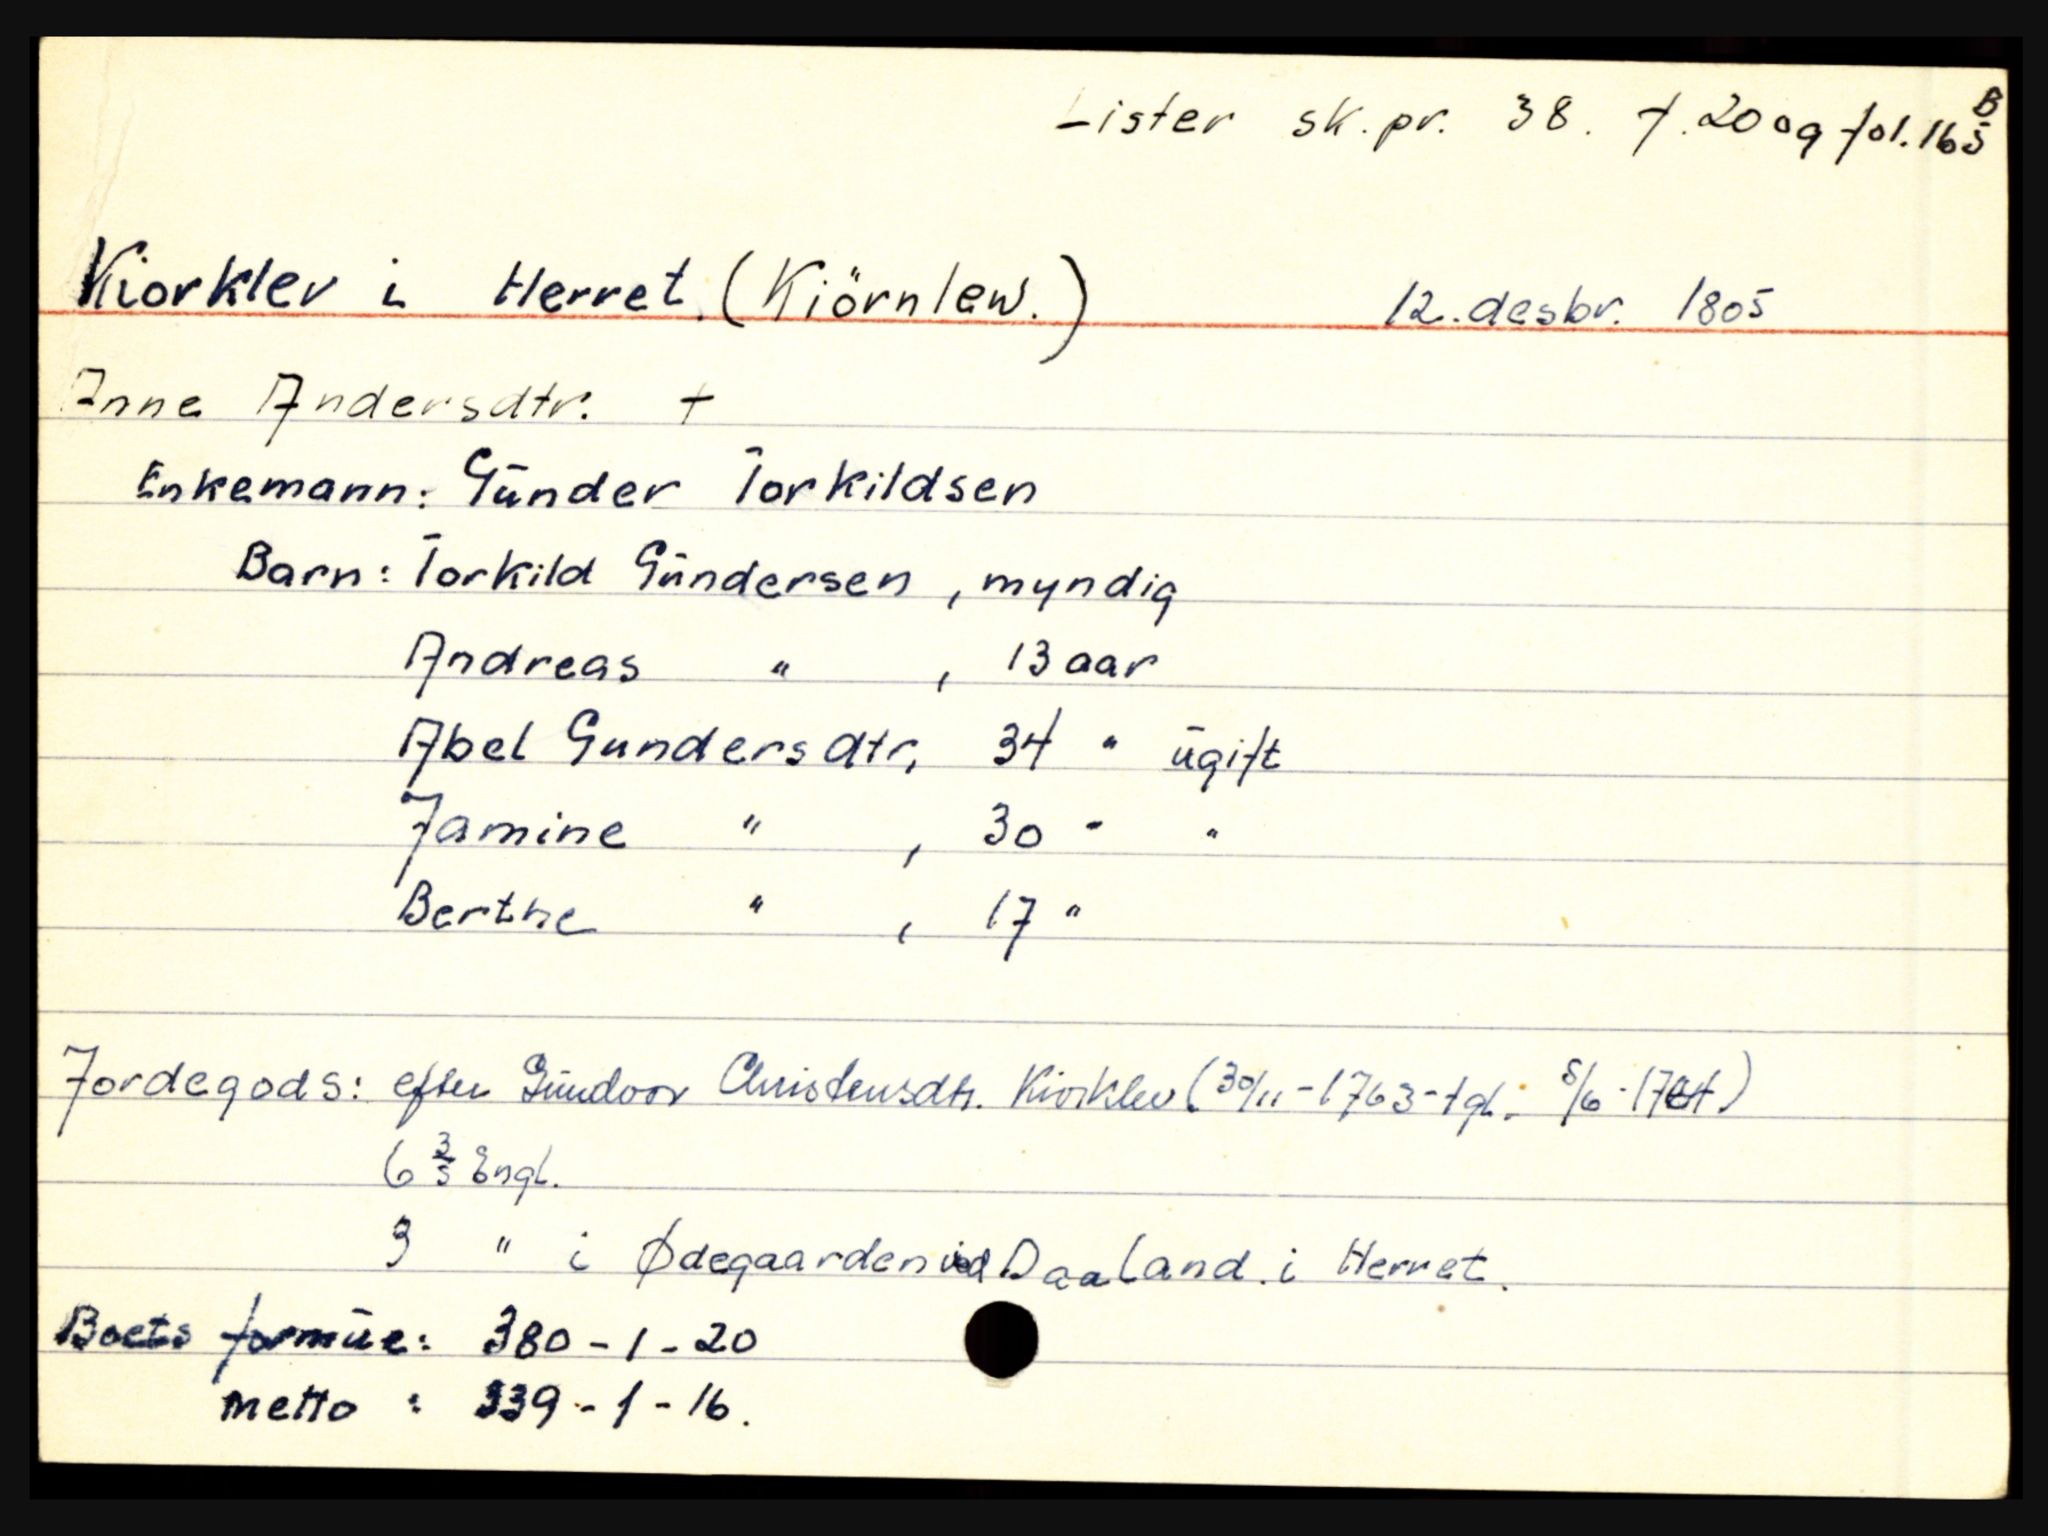 Lister sk.pr. 38. f.20 og fol.165 B
Kiorklev i Herret.(Kiörnlew.) 12.desbr. 1805
Anne Andersdtr. +
Enkemann: Gūnder Torkildsen
Barn: Torkild Gūndersen, myndig
Andreas " , 13 aar
Abel Gundersdtr, 34 " ūgift
Jamine " , 30 " "
Berthe " , 17 "
Jordegods: efter Gūndoor Christensdtr. Kiorklev (30/11-1763-tgl.
6 3/5 Engl.
3 " i Ødegaarden ved Daaland i Herret.
Boets formūe: 380-1-20
netto : 339-1-16.